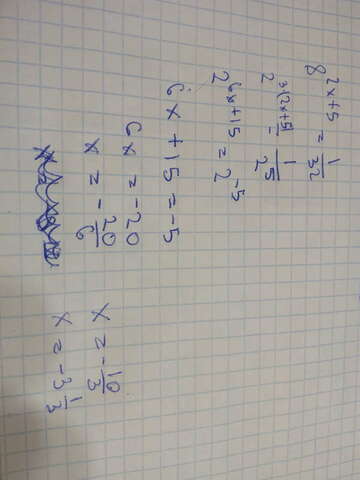 8^{2x+5} = 1/32
2^{3(2x+5)} = 1/2^5
2^{6x+15} = 2^{-5}
6x + 15 = -5
6x = -20
x = -20/6
x = -10/3
x = -3 1/3